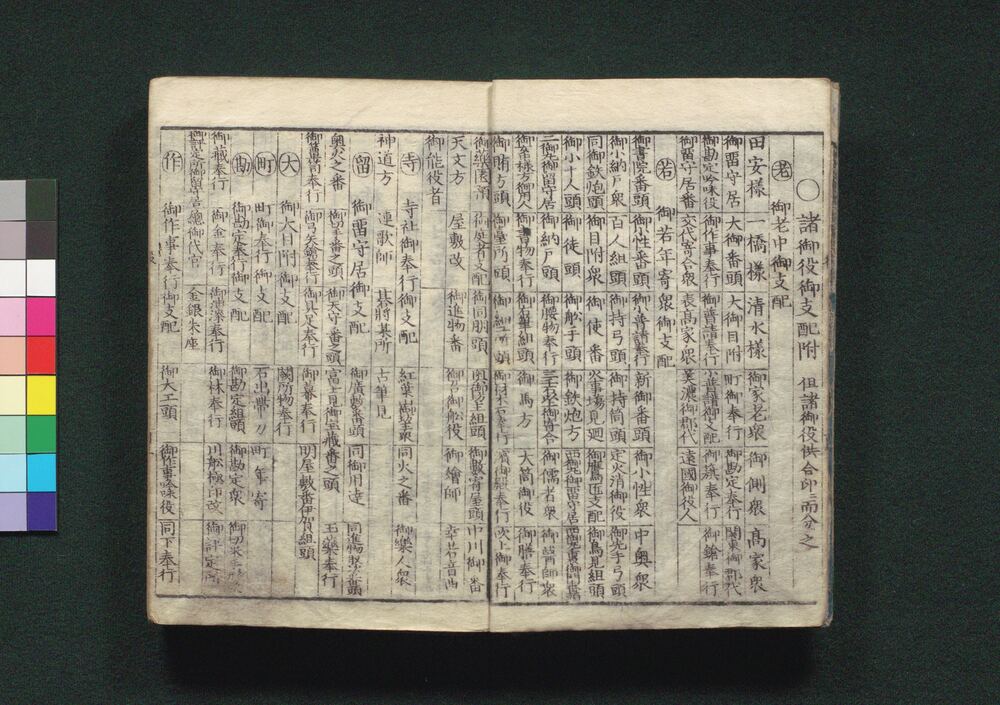 〇諸御役御支配附 但諸御役供合印ニ而分之
老 御老中御支配
田安様 一橋様 清水様 御家老衆 御側衆 高家衆
御留守居 大御番頭 大御目附 町御奉行 御勘定奉行 関東御郡代
御勘定吟味役 御作事奉行 御普請奉行 小普請御支配 御旗奉行 御鎗奉行
御留守居番 交代寄合衆 表高家衆 美濃御郡代 遠國御役人
若 御若年寄衆御支配
御書院番頭 御小性番頭 小普請奉行 新御番頭 御小性衆 中奥衆
御小納戸衆 百人組頭 御持弓頭 御持筒頭 定火消御役 御先手弓頭
同御鉄炮頭 御目附衆 御使番 火事場見廻 御鷹匠支配 御鳥見組頭
御小十人頭 御徒頭 御舩手頭 御鉄炮方 西丸御留守居
二丸御留守居 御納戸頭 御腰物奉行 御儒者衆 御醫師衆
御書物奉行 御馬方 大筒御役 御膳奉行
御賄方頭 御臺所頭 御細工所頭 御材木石奉行 吹上御奉行
御庭者支配 御同朋頭 奥御坊主組頭 御數寄屋頭 中川御番
天文方 屋敷改 御進物番 御召御舩役 御繪師 幸若音曲
御能役者
寺 寺社御奉行御支配 紅葉山御坊主衆 同火之番 御樂人衆
神道方 連歌師 碁將棊所 古筆見
留 御留守居御支配 御廣敷番頭 同御用達 同進物取次番頭
奥火之番 御天守番之頭 富士見御宝蔵番之頭 玉藥奉行
御舊蒿奉行 御弓矢鎗奉行 御具足奉行 御幕奉行 明屋敷番伊賀組頭
大 大御目附御支配 闕所物奉行
町 町御奉行御支配 石出帯刀 町年寄
西 御勘定奉行御支配 御勘定組頭 御勘定衆
御蔵奉行 御金奉行 御漆奉行 御林奉行 川舩極印改 御評定所
總御代官 金銀朱座
作 御作事奉行御支配 御大工頭 御作事吟味役 同下奉行